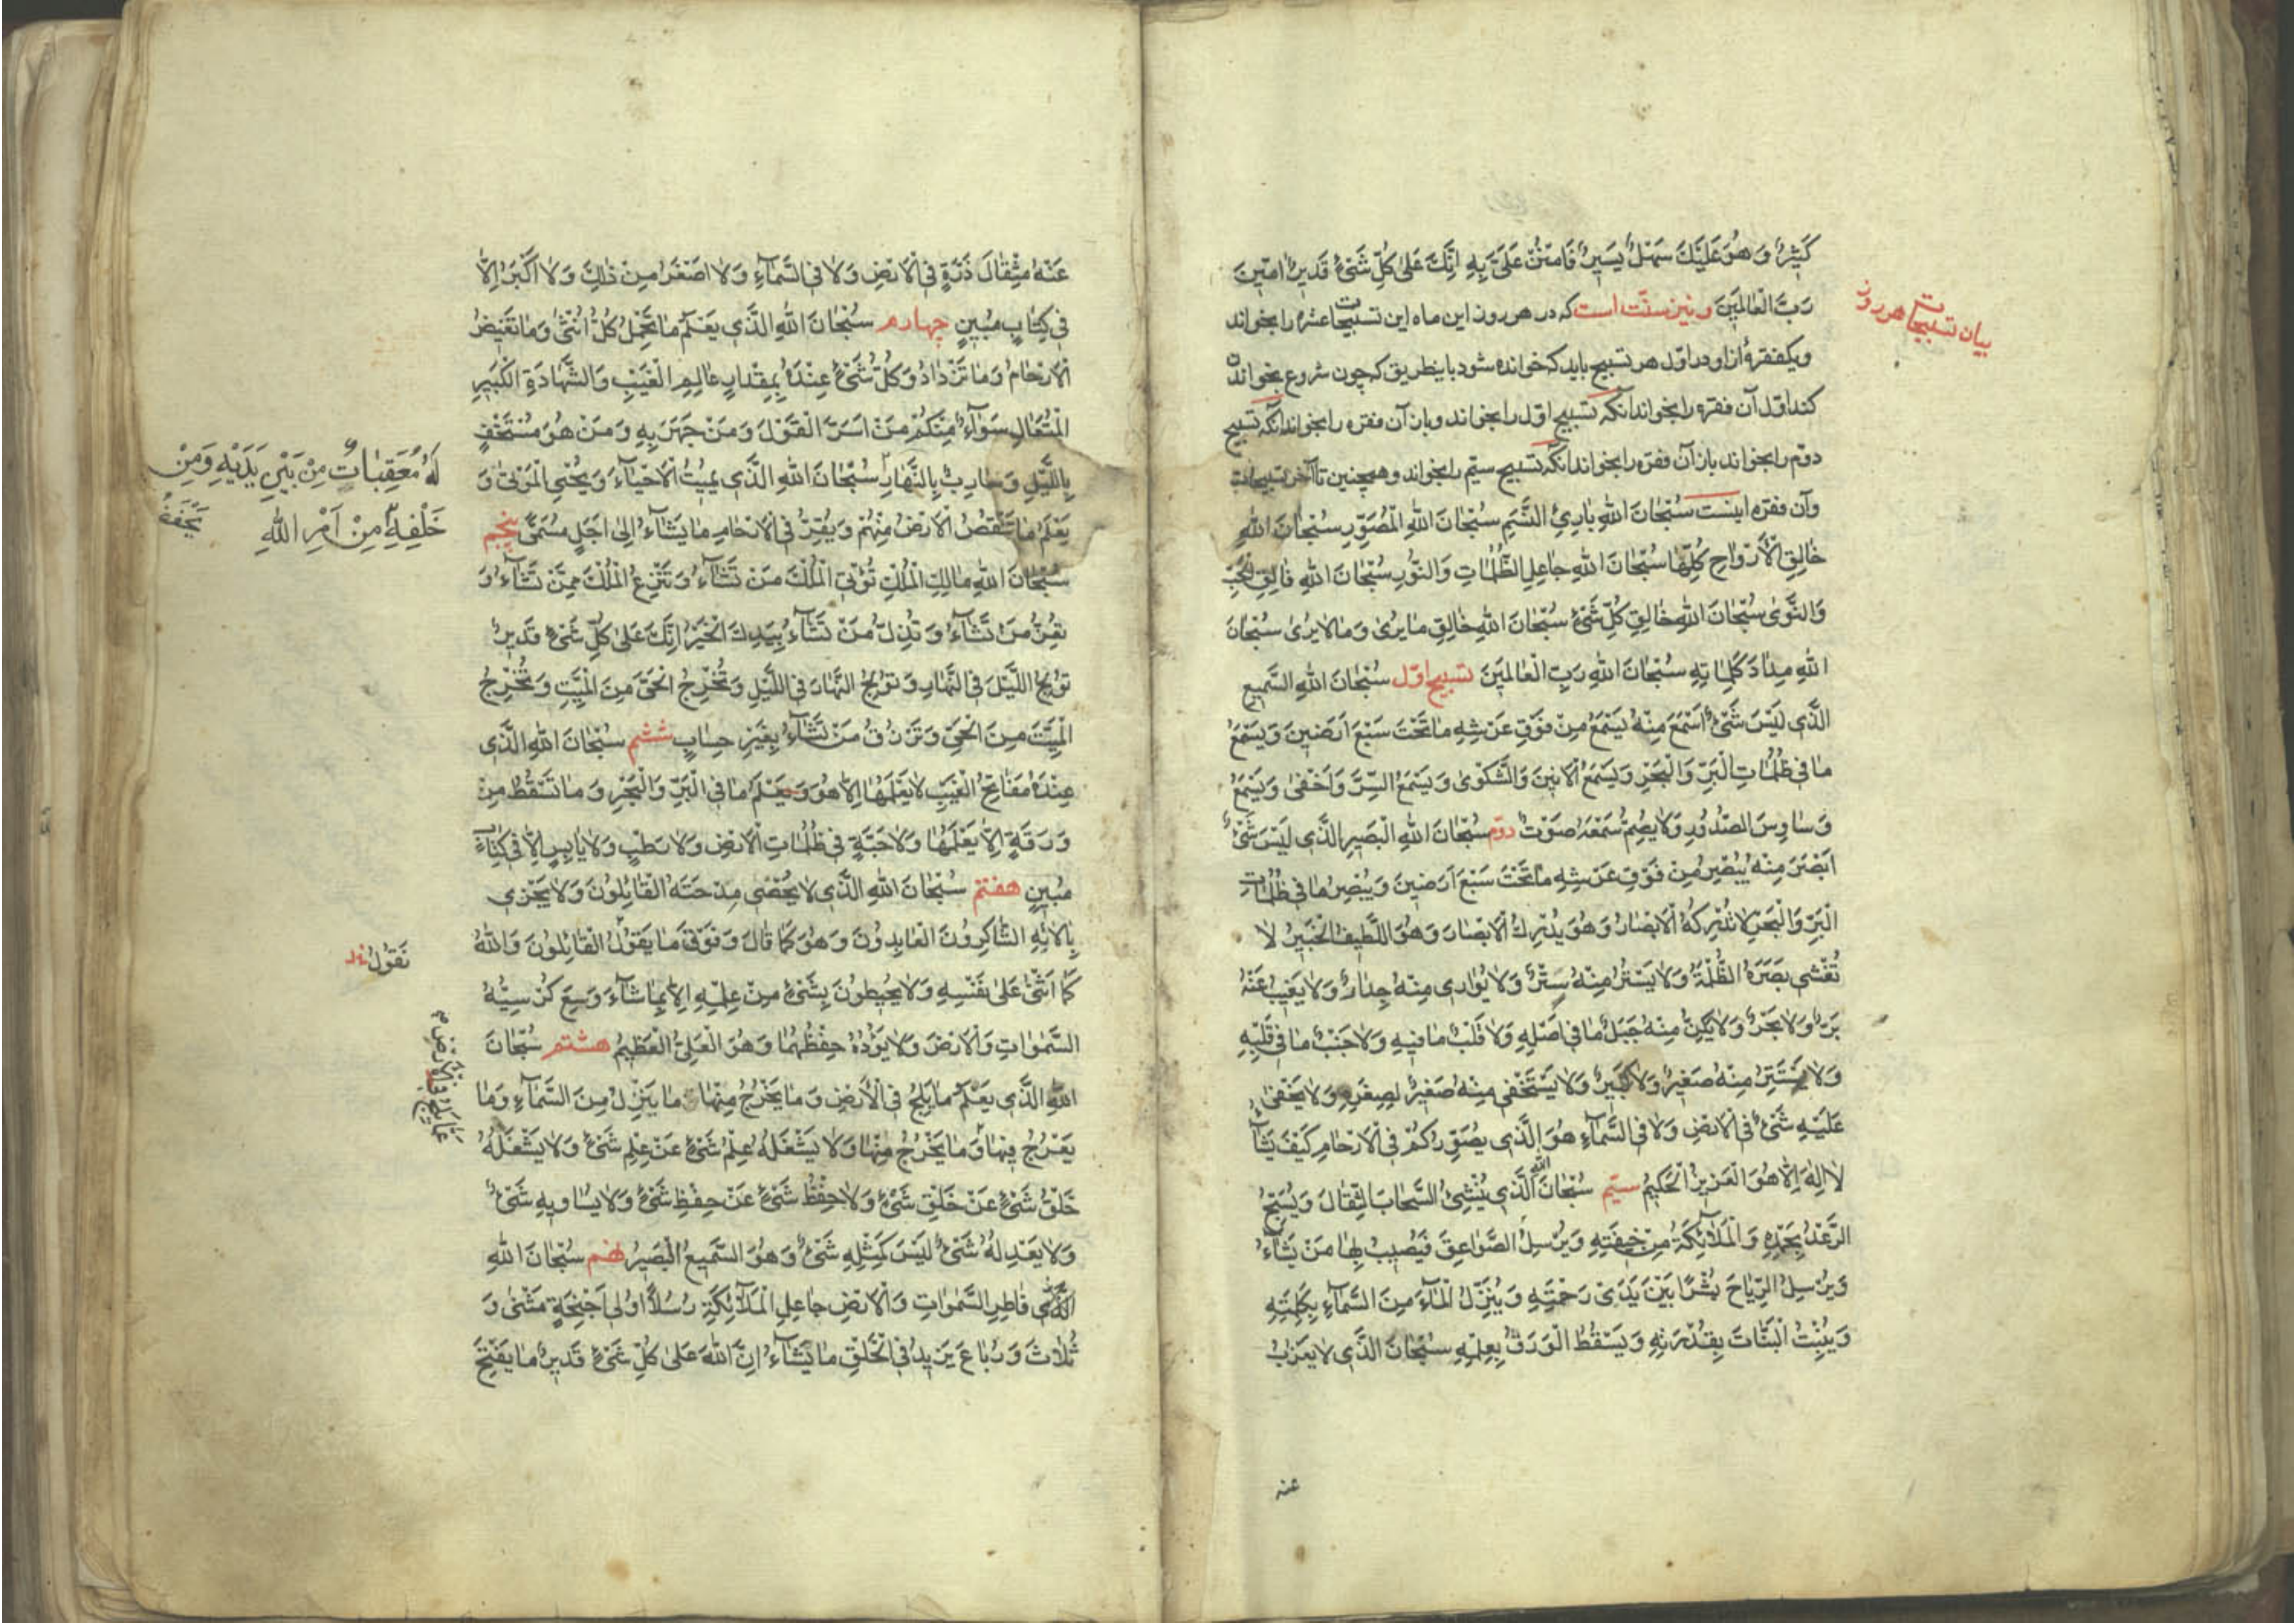 كَثِيرٌ وَهُوَ عَلَيْكَ سَهْلٌ يَسِيرٌ فَامْنُنْ عَلَيَّ بِهِ اِنَّكَ عَلىٰ كُلِّ شَيْءٍ قَدِيرٌ اٰمِينَ
رَبَّ الْعٰالَمِينَ و نيز سنّت است كه در هر روز اين ماه اين تسبيحات عشره را بخواند
بيان تسبيحات هر روز
ويكفقرهٔ از او در اوّل هر تسبيح بايد كه خوانده شود باينطريق كه چون شروع بخواندن
كند اوّل آن فقره را بخواند آنگه تسبيح اوّل را بخواند و باز آن فقره را بخواند آنگه تسبيح
دوّم را بخواند باز آن فقره را بخواند آنگه تسبيح سيّم را بخواند و همچنين تا آخر تسبيحات
وآن فقره اينست سُبْحٰانَ اللهِ بٰارِئِ النَّسَمِ سُبْحٰانَ اللهِ الْمُصَوِّرِ سُبْحٰانَ اللهِ
خٰالِقِ الْأَزْوٰاجِ كُلِّهٰا سُبْحٰانَ اللهِ جٰاعِلِ الظُّلُمٰاتِ وَالنُّورِ سُبْحٰانَ اللهِ فٰالِقِ الْحَبِّ
وَالنَّوىٰ سُبْحٰانَ اللهِ خٰالِقِ كُلِّ شَيْءٍ سُبْحٰانَ اللهِ خٰالِقِ مٰا يُرىٰ وَمٰا لٰا يُرىٰ سُبْحٰانَ
اللهِ مِدٰادَ كَلِمٰاتِهِ سُبْحٰانَ اللهِ رَبِّ الْعٰالَمِينَ تسبيح اوّل سُبْحٰانَ اللهِ السَّمِيعِ
الَّذِي لَيْسَ شَيْءٌ اَسْمَعَ مِنْهُ يَسْمَعُ مِنْ فَوْقِ عَرْشِهِ مٰا تَحْتَ سَبْعِ اَرَضِينَ وَيَسْمَعُ
مٰا فِي ظُلُمٰاتِ الْبَرِّ وَالْبَحْرِ وَيَسْمَعُ الْاَنِينَ وَالشَّكْوىٰ وَيَسْمَعُ السِّرَّ وَاَخْفىٰ وَيَسْمَعُ
وَسٰاوِسَ الصُّدُورِ وَلٰا يُصِمُّ سَمْعَهُ صَوْتٌ دوّم سُبْحٰانَ اللهِ الْبَصِيرِ الَّذِي لَيْسَ شَيْءٌ
اَبْصَرَ مِنْهُ يُبْصِرُ مِنْ فَوْقِ عَرْشِهِ مٰا تَحْتَ سَبْعِ اَرَضِينَ وَيُبْصِرُ مٰا فِي ظُلُمٰاتِ
الْبَرِّ وَالْبَحْرِ لٰا تُدْرِكُهُ الْاَبْصٰارُ وَهُوَ يُدْرِكُ الْاَبْصٰارَ وَهُوَ اللَّطِيفُ الْخَبِيرُ لٰا
تُغْشِي بَصَرَهُ الظُّلْمَةُ وَلٰا يَسْتُرُ مِنْهُ سِتْرٌ وَلٰا يُوٰارِي مِنْهُ جِدٰارٌ وَلٰا يَغِيبُ عَنْهُ
بَرٌّ وَلٰا بَحْرٌ وَلٰا يَكِنُّ مِنْهُ جَبَلٌ مٰا فِي اَصْلِهِ وَلٰا قَلْبٌ مٰا فِيهِ وَلٰا جَنْبٌ مٰا فِي قَلْبِهِ
وَلٰا يَسْتَتِرُ مِنْهُ صَغِيرٌ وَلٰا كَبِيرٌ وَلٰا يَسْتَخْفِي مِنْهُ صَغِيرٌ لِصِغَرِهِ وَلٰا يَخْفىٰ
عَلَيْهِ شَيْءٌ فِي الْاَرْضِ وَلٰا فِي السَّمٰاءِ هُوَ الَّذِي يُصَوِّرُكُمْ فِي الْاَرْحٰامِ كَيْفَ يَشٰاءُ
لٰا اِلٰهَ اِلّٰا هُوَ الْعَزِيزُ الْحَكِيمُ سيّم سُبْحٰانَ اللهِ الَّذِي يُنْشِئُ السَّحٰابَ الثِّقٰالَ وَيُسَبِّحُ
الرَّعْدُ بِحَمْدِهِ وَالْمَلٰائِكَةُ مِنْ خِيفَتِهِ وَيُرْسِلُ الصَّوٰاعِقَ فَيُصِيبُ بِهٰا مَنْ يَشٰاءُ
وَيُرْسِلُ الرِّيٰاحَ بُشْرًا بَيْنَ يَدَيْ رَحْمَتِهِ وَيُنَزِّلُ الْمٰاءَ مِنَ السَّمٰاءِ بِكَلِمَتِهِ
وَيُنْبِتُ النَّبٰاتَ بِقُدْرَتِهِ وَيَسْقُطُ الْوَرَقُ بِعِلْمِهِ سُبْحٰانَ الَّذِي لٰا يَعْزُبُ
عنه
عَنْهُ مِثْقٰالَ ذَرَّةٍ فِي الْاَرْضِ وَلٰا فِي السَّمٰاءِ وَلٰا اَصْغَرَ مِنْ ذٰلِكَ وَلٰا اَكْبَرَ اِلّٰا
فِي كِتٰابٍ مُبِينٍ چهارم سُبْحٰانَ اللهِ الَّذِي يَعْلَمُ مٰا تَحْمِلُ كُلُّ اُنْثىٰ وَمٰا تَغِيضُ
الْاَرْحٰامُ وَمٰا تَزْدٰادُ وَكُلُّ شَيْءٍ عِنْدَهُ بِمِقْدٰارٍ عٰالِمِ الْغَيْبِ وَالشَّهٰادَةِ الْكَبِيرِ
الْمُتَعٰالِ سَوٰاءٌ مِنْكُمْ مَنْ اَسَرَّ الْقَوْلَ وَمَنْ جَهَرَ بِهِ وَمَنْ هُوَ مُسْتَخْفٍ
بِاللَّيْلِ وَسٰارِبٌ بِالنَّهٰارِ سُبْحٰانَ اللهِ الَّذِي يُمِيتُ الْاَحْيٰاءَ وَيُحْيِي الْمَوْتىٰ وَ
لَهُ مُعَقِّبٰاتٌ مِنْ بَيْنِ يَدَيْهِ وَمِنْ
خَلْفِهِ مِنْ اَمْرِ اللهِ
يَعْلَمُ مٰا تَنْقُصُ الْاَرْضُ مِنْهُمْ وَيُقِرُّ فِي الْاَرْحٰامِ مٰا يَشٰاءُ اِلىٰ اَجَلٍ مُسَمًّى پنجم
سُبْحٰانَ اللهِ مٰالِكِ الْمُلْكِ تُؤْتِي الْمُلْكَ مَنْ تَشٰاءُ وَتَنْزِعُ الْمُلْكَ مِمَّنْ تَشٰاءُ وَ
تُعِزُّ مَنْ تَشٰاءُ وَتُذِلُّ مَنْ تَشٰاءُ بِيَدِكَ الْخَيْرُ اِنَّكَ عَلىٰ كُلِّ شَيْءٍ قَدِيرٌ
تُولِجُ اللَّيْلَ فِي النَّهٰارِ وَتُولِجُ النَّهٰارَ فِي اللَّيْلِ وَتُخْرِجُ الْحَيَّ مِنَ الْمَيِّتِ وَتُخْرِجُ
الْمَيِّتَ مِنَ الْحَيِّ وَتَرْزُقُ مَنْ تَشٰاءُ بِغَيْرِ حِسٰابٍ ششم سُبْحٰانَ اللهِ الَّذِي
عِنْدَهُ مَفٰاتِحُ الْغَيْبِ لٰا يَعْلَمُهٰا اِلّٰا هُوَ وَيَعْلَمُ مٰا فِي الْبَرِّ وَالْبَحْرِ وَمٰا تَسْقُطُ مِنْ
وَرَقَةٍ اِلّٰا يَعْلَمُهٰا وَلٰا حَبَّةٍ فِي ظُلُمٰاتِ الْاَرْضِ وَلٰا رَطْبٍ وَلٰا يٰابِسٍ اِلّٰا فِي كِتٰابٍ
مُبِينٍ هفتم سُبْحٰانَ اللهِ الَّذِي لٰا يُحْصِي مِدْحَتَهُ الْقٰائِلُونَ وَلٰا يَجْزِي
بِاٰلٰائِهِ الشّٰاكِرُونَ الْعٰابِدُونَ وَهُوَ كَمٰا قٰالَ وَفَوْقَ مٰا يَقُولُ الْقٰائِلُونَ وَاللهُ
نَقُولُ
كَمٰا اَثْنىٰ عَلىٰ نَفْسِهِ وَلٰا يُحِيطُونَ بِشَيْءٍ مِنْ عِلْمِهِ اِلّٰا بِمٰا شٰاءَ وَسِعَ كُرْسِيُّهُ
السَّمٰوٰاتِ وَالْاَرْضَ وَلٰا يَؤُدُهُ حِفْظُهُمٰا وَهُوَ الْعَلِيُّ الْعَظِيمُ هشتم سُبْحٰانَ
اللهِ الَّذِي يَعْلَمُ مٰا يَلِجُ فِي الْاَرْضِ وَمٰا يَخْرُجُ مِنْهٰا مٰا يَنْزِلُ مِنَ السَّمٰاءِ وَمٰا
يَعْرُجُ فِيهٰا وَمٰا يَخْرُجُ مِنْهٰا وَلٰا يَشْغَلُهُ عِلْمُ شَيْءٍ عَنْ عِلْمِ شَيْءٍ وَلٰا يَشْغَلُهُ
خَلْقُ شَيْءٍ عَنْ خَلْقِ شَيْءٍ وَلٰا حِفْظُ شَيْءٍ عَنْ حِفْظِ شَيْءٍ وَلٰا يُسٰاوِيهِ شَيْءٌ
وَلٰا يَعْدِلُهُ شَيْءٌ لَيْسَ كَمِثْلِهِ شَيْءٌ وَهُوَ السَّمِيعُ الْبَصِيرُ نهم سُبْحٰانَ اللهِ
الَّذِي فٰاطِرِ السَّمٰوٰاتِ وَالْاَرْضِ جٰاعِلِ الْمَلٰائِكَةِ رُسُلًا اُولِي اَجْنِحَةٍ مَثْنىٰ وَ
ثُلٰاثَ وَرُبٰاعَ يَزِيدُ فِي الْخَلْقِ مٰا يَشٰاءُ اِنَّ اللهَ عَلىٰ كُلِّ شَيْءٍ قَدِيرٌ مٰا يَفْتَحُ